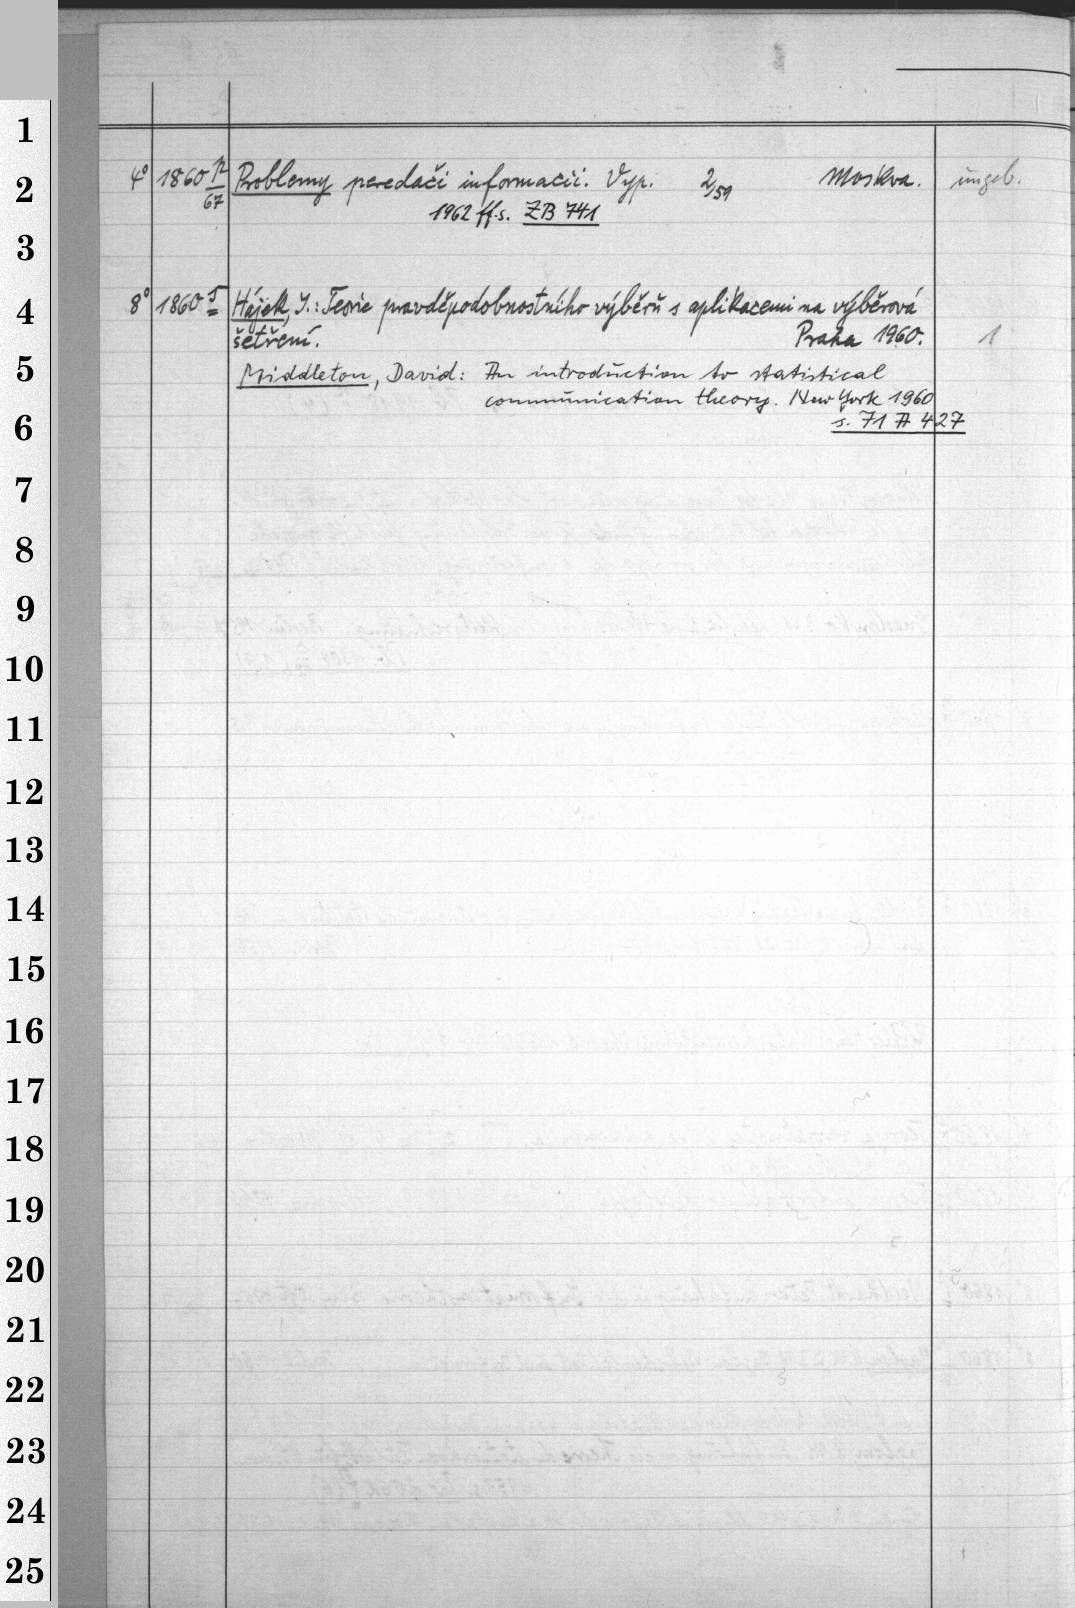 1
2
4° 1860 p/67 Problemy peredači informacii. Vyp. 2/59 Moskva. ungeb.
1962 ff. s. ZB 741
3
4
8° 1860 5 Hájek, J.: Teorie pravděpodobnostního výběru s aplikacemi na výběrová
šetření. Praha 1960. 1
5
Middleton, David: An introduction to statistical
communication theory. New York 1960
6
s. 71 A 427
7
8
9
10
11
12
13
14
15
16
17
18
19
20
21
22
23
24
25